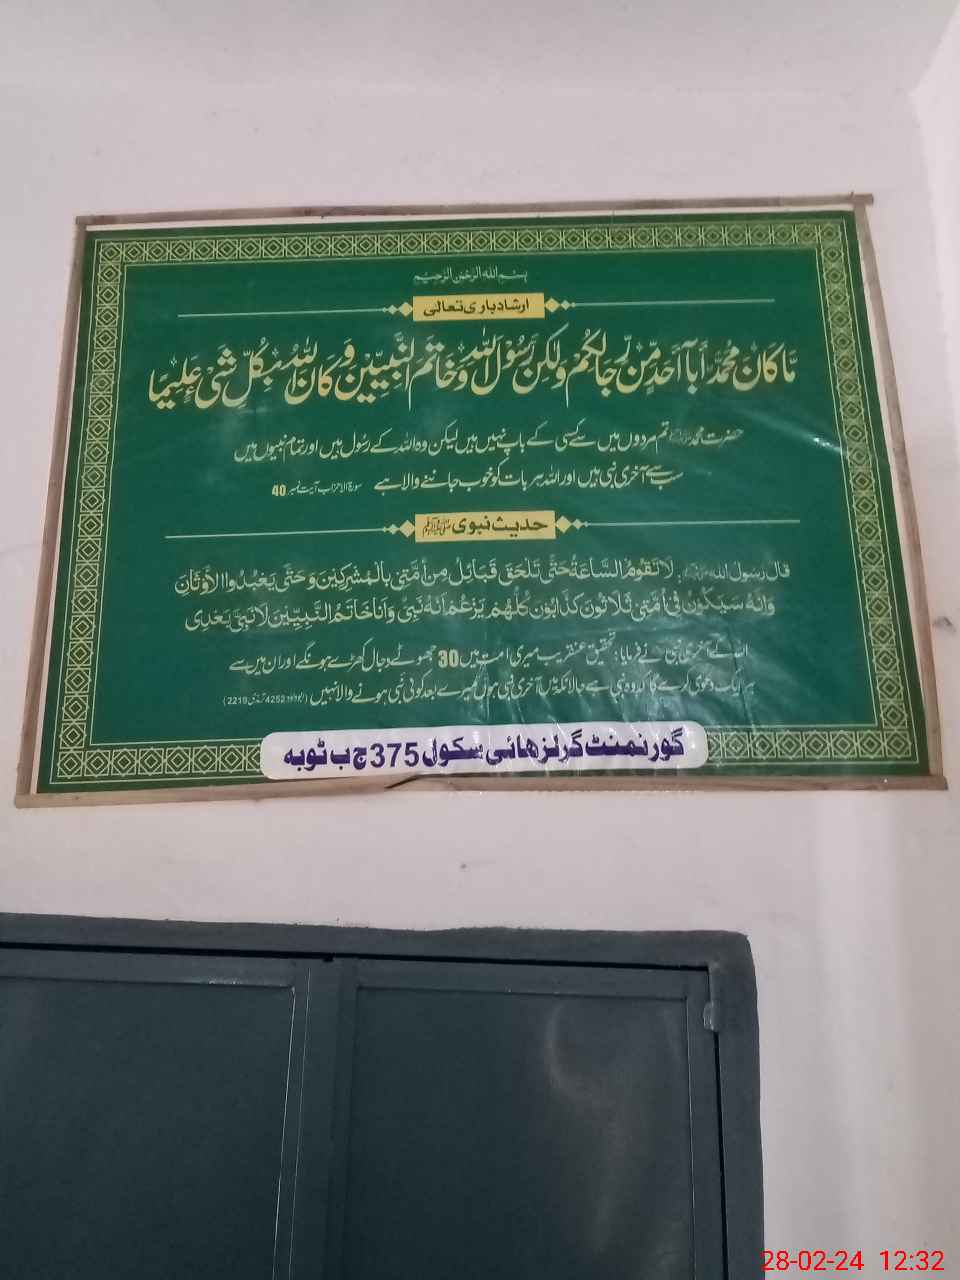 بسم الله الرحمن الرحيم
ارشاد باری تعالی
مَا كَانَ مُحَمَّدٌ أَبَآ أَحَدٍ مِّنْ رِّجَالِكُمْ وَلٰكِنْ رَّسُوْلَ اللّٰهِ وَخَاتَمَ النَّبِيّٖنَ وَ كَانَ اللّٰهُ بِكُلِّ شَيْءٍ عَلِيْمًا
حضرت محمد ﷺ تم مردوں میں سے کسی کے باپ نہیں ہیں لیکن وہ اللہ کے رسُول ہیں اور تمام نبیوں میں
سب سے آخری نبی ہیں اور اللہ ہر بات کو خوب جاننے والا ہے سورۃ الاحزاب آیت نمبر 40
حدیث نبوی ﷺ
قال رسول الله ﷺ: لَا تَقُوْمُ السَّاعَةُ حَتّٰى تَلْحَقَ قَبَائِلُ مِنْ اُمَّتِيْ بِالْمُشْرِكِيْنَ وَحَتّٰى يَعْبُدُوا الْاَوْثَانَ
وَاِنَّهُ سَيَكُوْنُ فِيْ اُمَّتِيْ ثَلَاثُوْنَ كَذَّابُوْنَ كُلُّهُمْ يَزْعُمُ اَنَّهُ نَبِيٌّ وَاَنَا خَاتَمُ النَّبِيِّيْنَ لَا نَبِيَّ بَعْدِيْ
اللہ کے آخری نبی نے فرمایا: تحقیق عنقریب میری امت میں 30 جھوٹے دجال کھڑے ہونگے اور ان میں سے
ہر ایک دعویٰ کرے گا کہ وہ نبی ہے حالانکہ میں آخری نبی ہوں میرے بعد کوئی نبی ہونے والا نہیں (ابوداؤد 4252 ترمذی 2219)
گورنمنٹ گرلز ھائی سکول 375 ج ب ٹوبہ
28-02-24 12:32